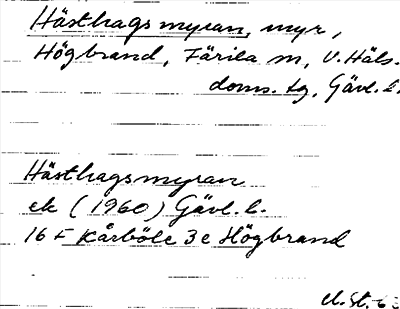 Hästhagsmyran, myr,
Högbrand, Färila sn, V. Häls.
doms. tg, Gävl. l.
Hästhagsmyran
ek (1960) Gävl. l.
16 F Kårböle 3 e Högbrand